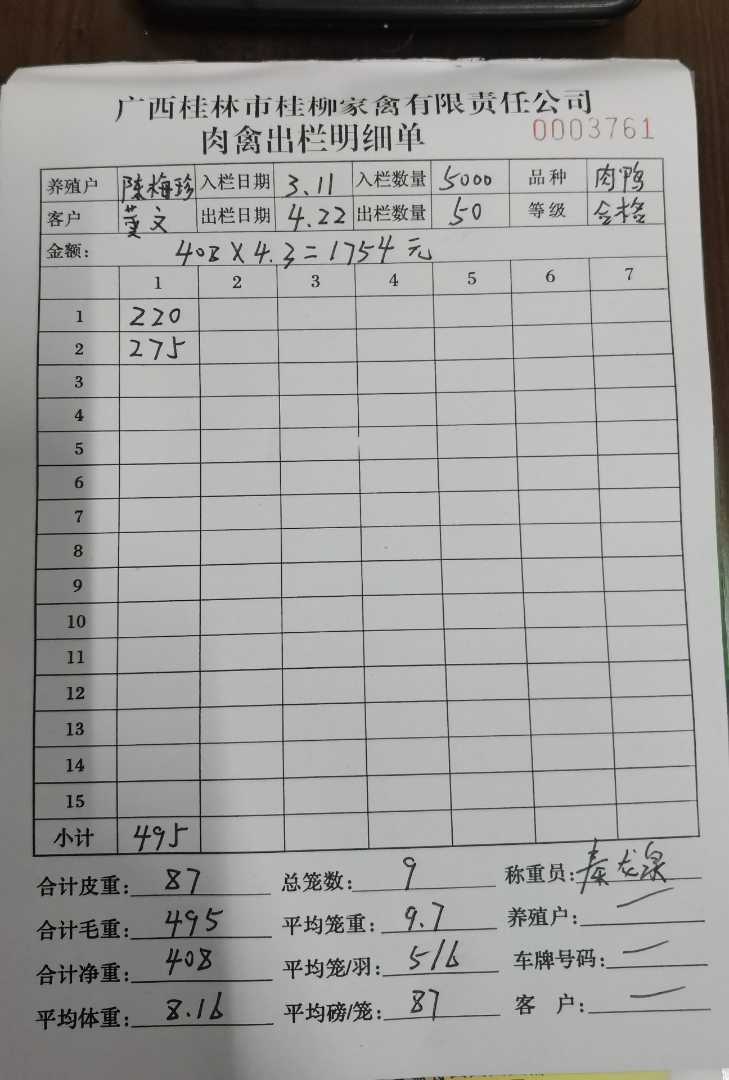 广西桂林市桂柳家禽有限责任公司
肉禽出栏明细单 0003761
养殖户 陈梅珍 入栏日期 3.11 入栏数量 5000 品种 肉鸭
客户 文 出栏日期 4.22 出栏数量 50 等级 合格
金额: 408×4.3=1754元
1 2 3 4 5 6 7
1 220
2 275
3
4
5
6
7
8
9
10
11
12
13
14
15
小计 495
合计皮重: 87 总笼数: 9 称重员: 秦龙泉
合计毛重: 495 平均笼重: 9.7 养殖户: 一
合计净重: 408 平均笼/羽: 5/6 车牌号码: 一
平均体重: 8.16 平均磅/笼: 87 客 户: 一